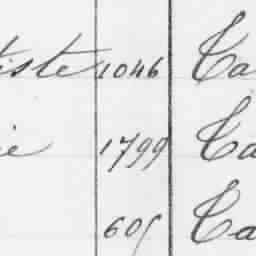 iste 1046 Ca
ie 1799 Ca
605 Ca